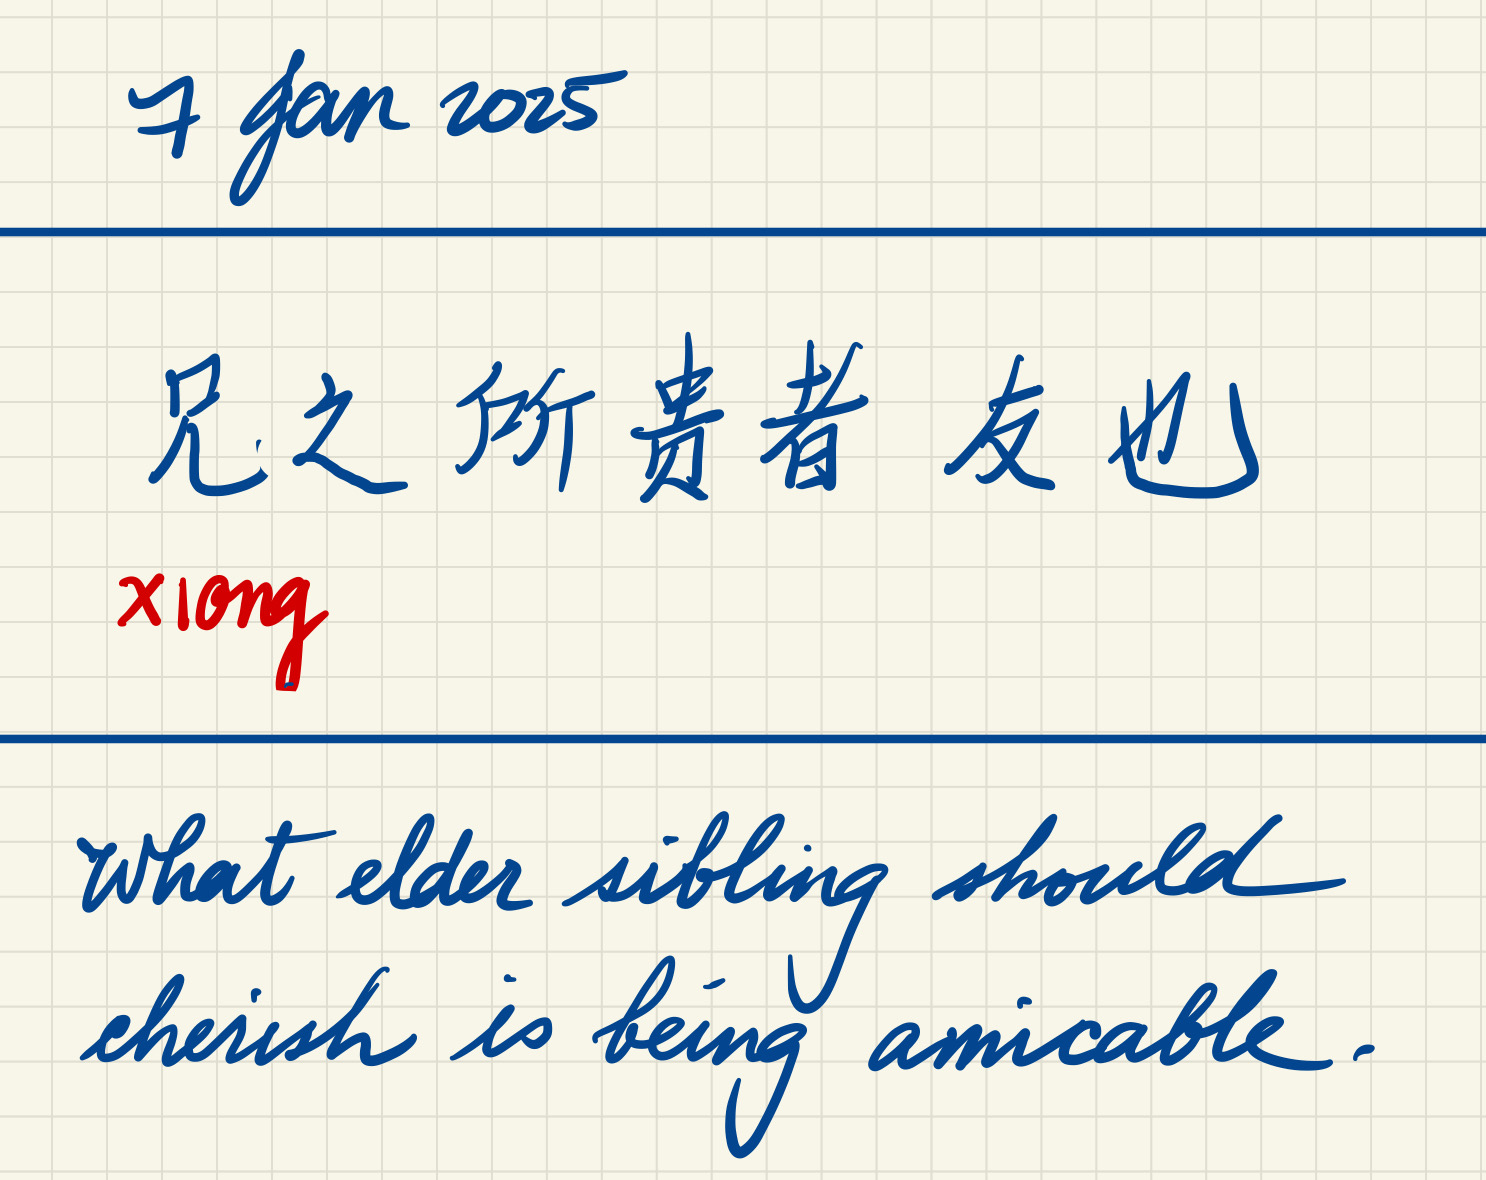 7 Jan 2025
兄之所贵者 友也
xiong
What elder sibling should
cherish is being amicable.